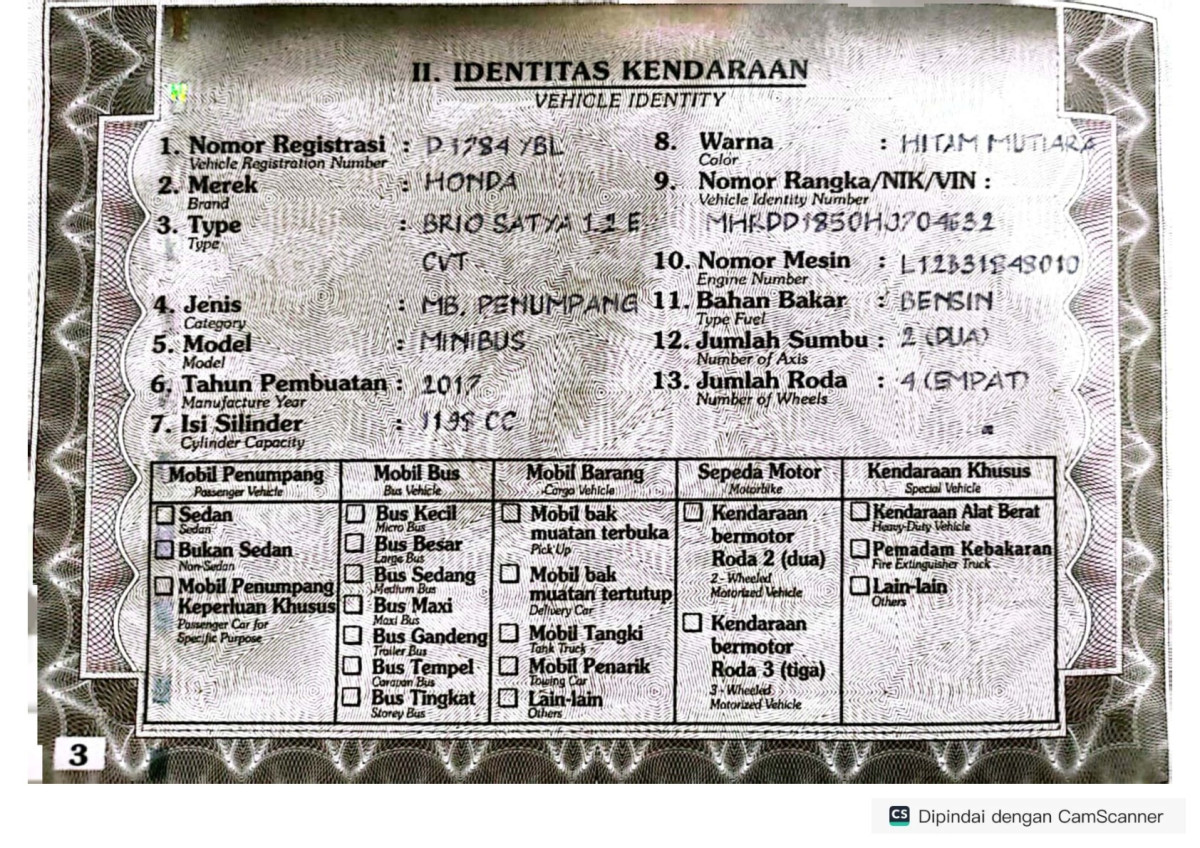 II. IDENTITAS KENDARAAN
VEHICLE IDENTITY
1. Nomor Registrasi : D 1784 YBL
Vehicle Registration Number
2. Merek : HONDA
Brand
3. Type : BRIO SATYA 1.2 E
Type
CVT
4. Jenis : MB. PENUMPANG
Category
5. Model : MINIBUS
Model
6. Tahun Pembuatan : 2017
Manufacture Year
7. Isi Silinder : 1198 CC
Cylinder Capacity
8. Warna : HITAM MUTIARA
Color
9. Nomor Rangka/NIK/VIN :
Vehicle Identity Number
MHRDD1850HJ704632
10. Nomor Mesin :
Engine Number
11. Bahan Bakar : BENSIN
Type Fuel
12. Jumlah Sumbu : 2 (DUA)
Number of Axis
13. Jumlah Roda : 4 (EMPAT)
Number of Wheels
Mobil Penumpang
Passenger Vehicle
Sedan
Sedan
Bukan Sedan
Non-Sedan
Mobil Penumpang
Keperluan Khusus
Passenger Car for
Specific Purpose
Mobil Bus
Bus Vehicle
Bus Kecil
Micro Bus
Bus Besar
Large Bus
Bus Sedang
Medium Bus
Bus Maxi
Maxi Bus
Bus Gandeng
Trailer Bus
Bus Tempel
Caravan Bus
Bus Tingkat
Storey Bus
Mobil Barang
Cargo Vehicle
Mobil bak
muatan terbuka
Pick Up
Mobil bak
muatan tertutup
Delivery Car
Mobil Tangki
Tank Truck
Mobil Penarik
Towing Car
Lain-lain
Others
Sepeda Motor
Motorbike
Kendaraan
bermotor
Roda 2 (dua)
2 - Wheeled
Motorized Vehicle
Kendaraan
bermotor
Roda 3 (tiga)
3 - Wheeled
Motorized Vehicle
Kendaraan Khusus
Special Vehicle
Kendaraan Alat Berat
Heavy-Duty Vehicle
Pemadam Kebakaran
Fire Extinguisher Truck
Lain-lain
Others
3
CS Dipindai dengan CamScanner